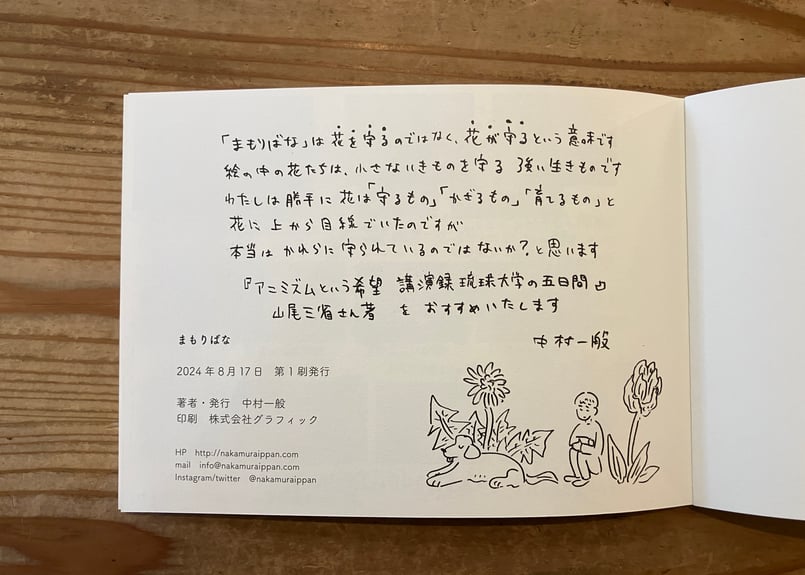 「まもりばな」は花を守るのではなく、花が守るという意味です
絵の中の花たちは、小さないきものを守る 強い生きものです
わたしは勝手に花は「守るもの」「かざるもの」「育てるもの」と
花に上から目線でいたのですが
本当はかれらに守られているのではないか?と思います
『アニミズムという希望 講演録 琉球大学の五日間』
山尾三省さん著 を おすすめいたします
中村一般
まもりばな
2024年8月17日 第1刷発行
著者・発行 中村一般
印刷 株式会社グラフィック
HP http://nakamuraippan.com
mail info@nakamuraippan.com
Instagram/twitter @nakamuraippan